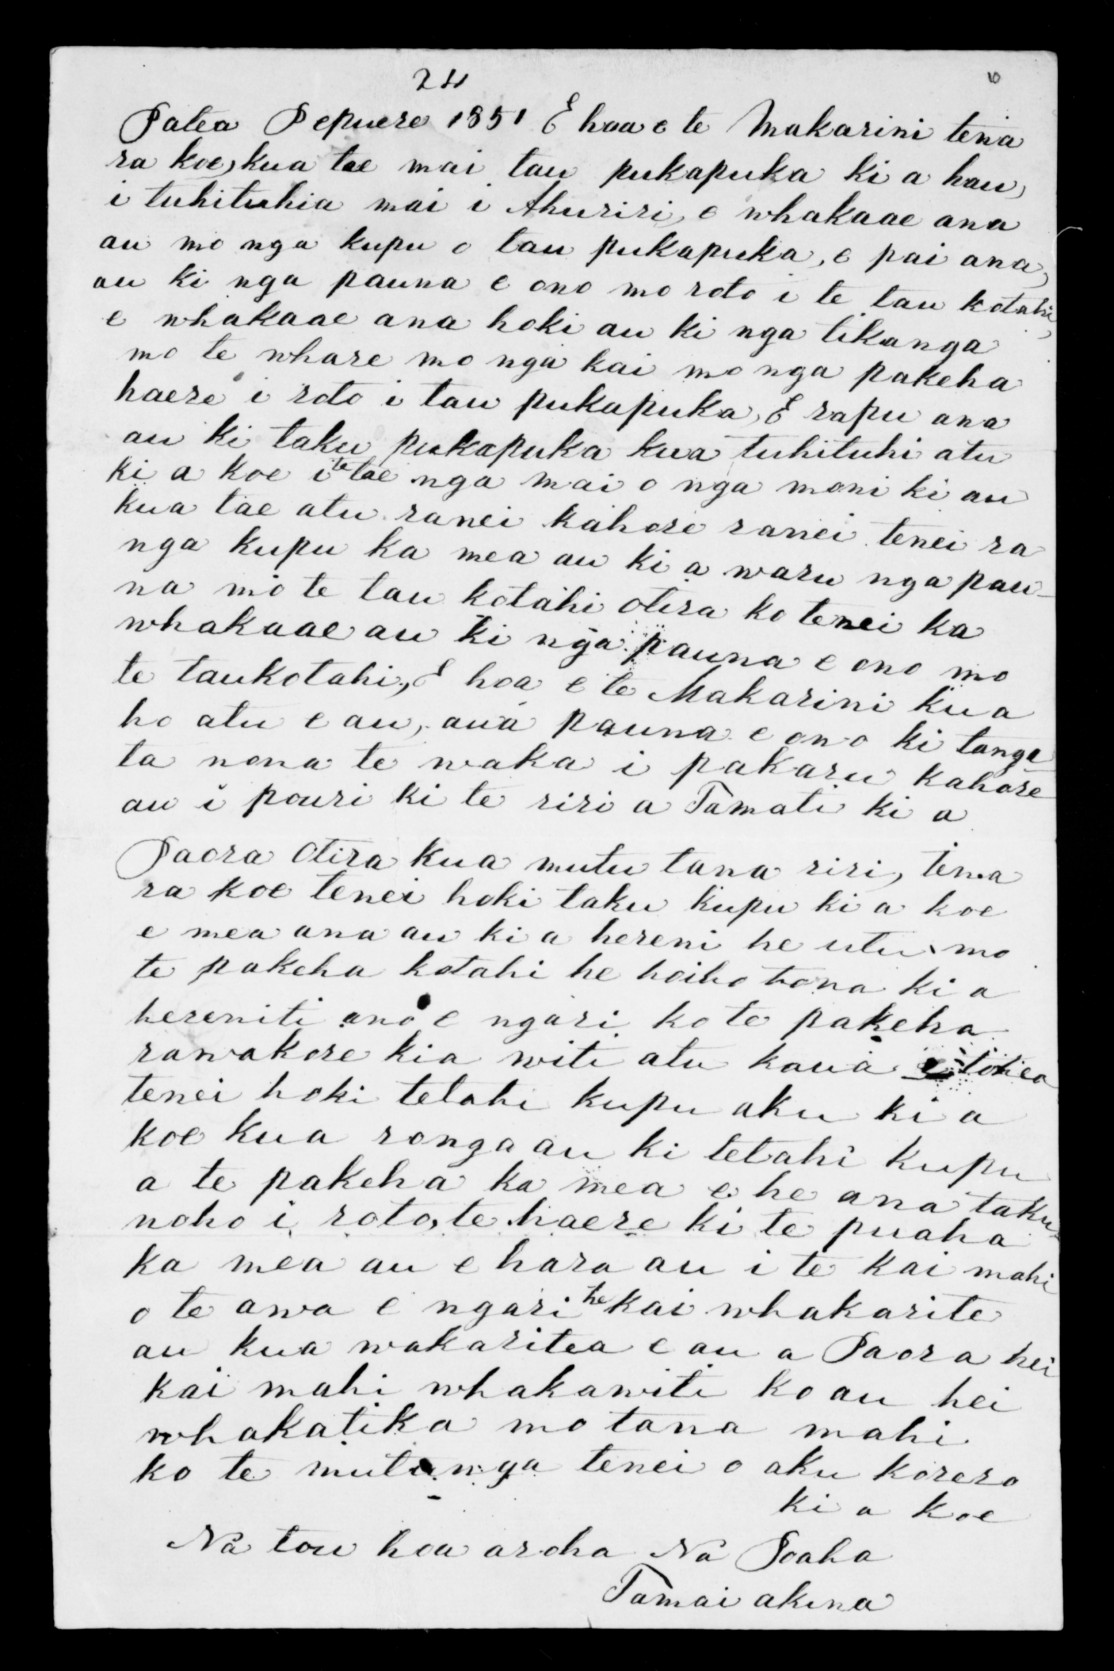 24
Patea Pepuere 1851 E hoa e te Makarini tena
ra koe, kua tae mai tau pukapuka ki a hau,
i tuhituhia mai i Ahuriri, e whakaae ana
au mo nga kupu o tau pukapuka, e pai ana,
au ki nga pauna e ono mo roto i te tau kotahi,
e whakaae ana hoki au ki nga tikanga
mo te whare mo nga kai mo nga pakeha
haere i roto i tau pukapuka, E rapu ana
au ki taku pukapuka kua tuhituhi atu
ki a koe i te tae nga mai o nga moni ki au
kua tae atu ranei kahore ranei tenei ra
nga kupu ka mea au ki a waru nga pau-
na mo te tau kotahi otira ko tenei ka
whakaae au ki nga pauna e ono mo
te taukotahi, E hoa e te Makarini kua
ho atu e au, aua pauna e ono ki tanga
ta nona te waka i pakaru kahore
au i pouri ki te riri a Tamati ki a
Paora Otira kua mutu tana riri, tena
ra koe tenei hoki taku kupu ki a koe
e mea ana au ki a hereni he utu mo
te pakeha kotahi he hoiho tona ki a
hereniti ano e ngari ko te pakeha
rawakore kia witi atu kaua e tohea
tenei hoki tetahi kupu aku ki a
koe kua ronga au ki tetahi kupu
a te pakeha ka mea e he ana taku
noho i roto, te haere ki te puaha
ka mea au e hara au i te kai mahi
o te awa e ngari he kai whakarite
au kua wakaritea e au a Paora hei
kai mahi whakawiti ko au hei
whakatika mo tana mahi
ko te mutunga tenei o aku korero
ki a koe
Na tou hoa aroha Na Poaha
Tamai akina